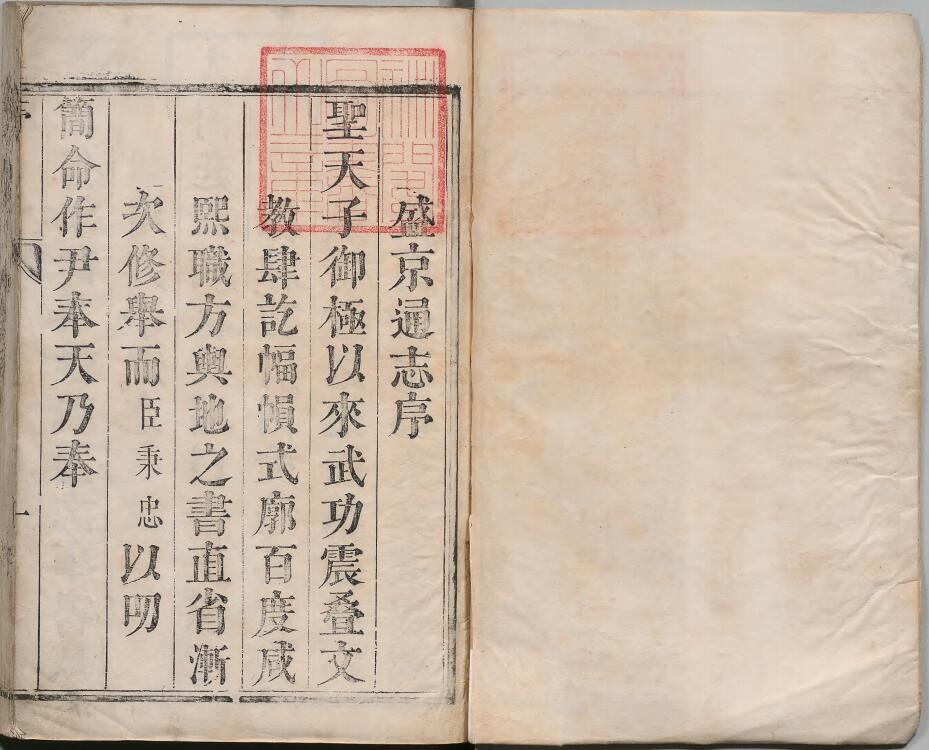 盛京通志序
聖天子御極以來武功震疊文
教肆訖幅幀式廓百度咸
熙職方輿地之書直省漸
次修舉而臣秉忠以叨
簡命作尹奉天乃奉
序
一